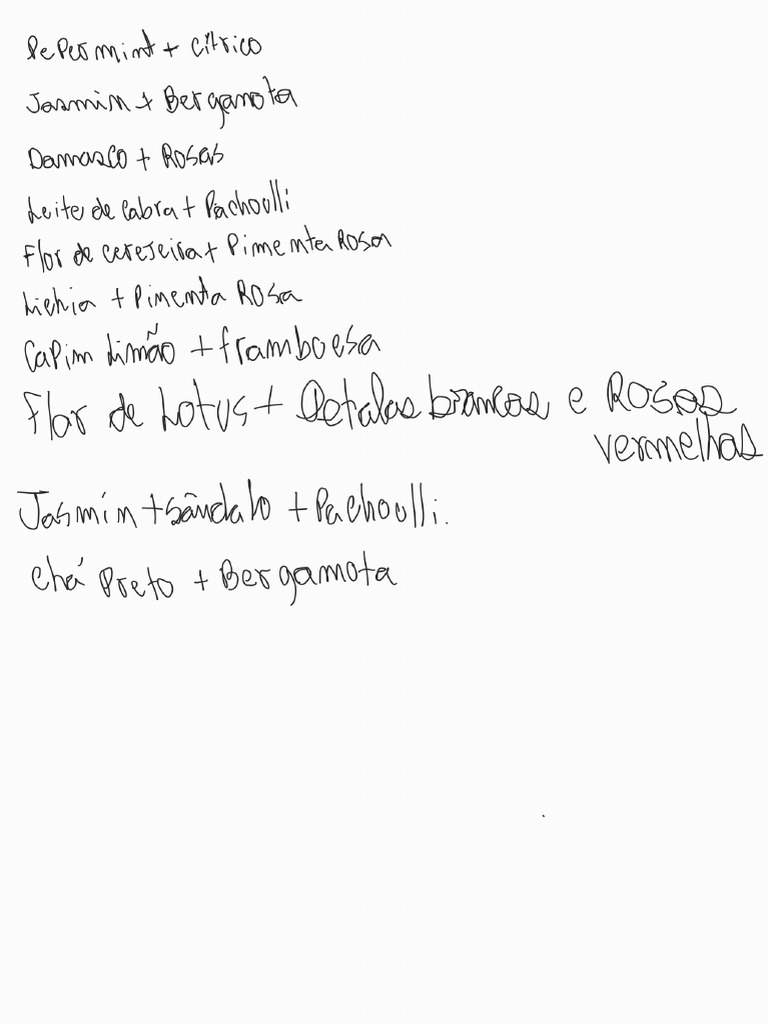 Pepermint + cítrico
Jasmin + Bergamota
Damasco + Rosas
Leite de Cabra + Pachoulli
Flor de cerejeira + Pimenta Rosa
Lichia + Pimenta Rosa
Capim Limão + framboesa
Flor de Lotus + Petalas brancas e Rosas
vermelhas
Jasmín + sândalo + Pachoulli.
chá Preto + Bergamota